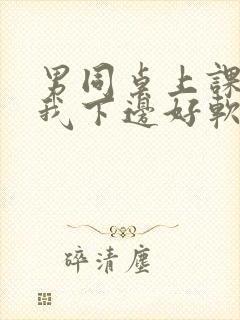 男同桌上課
我下邊好軟
碎清塵